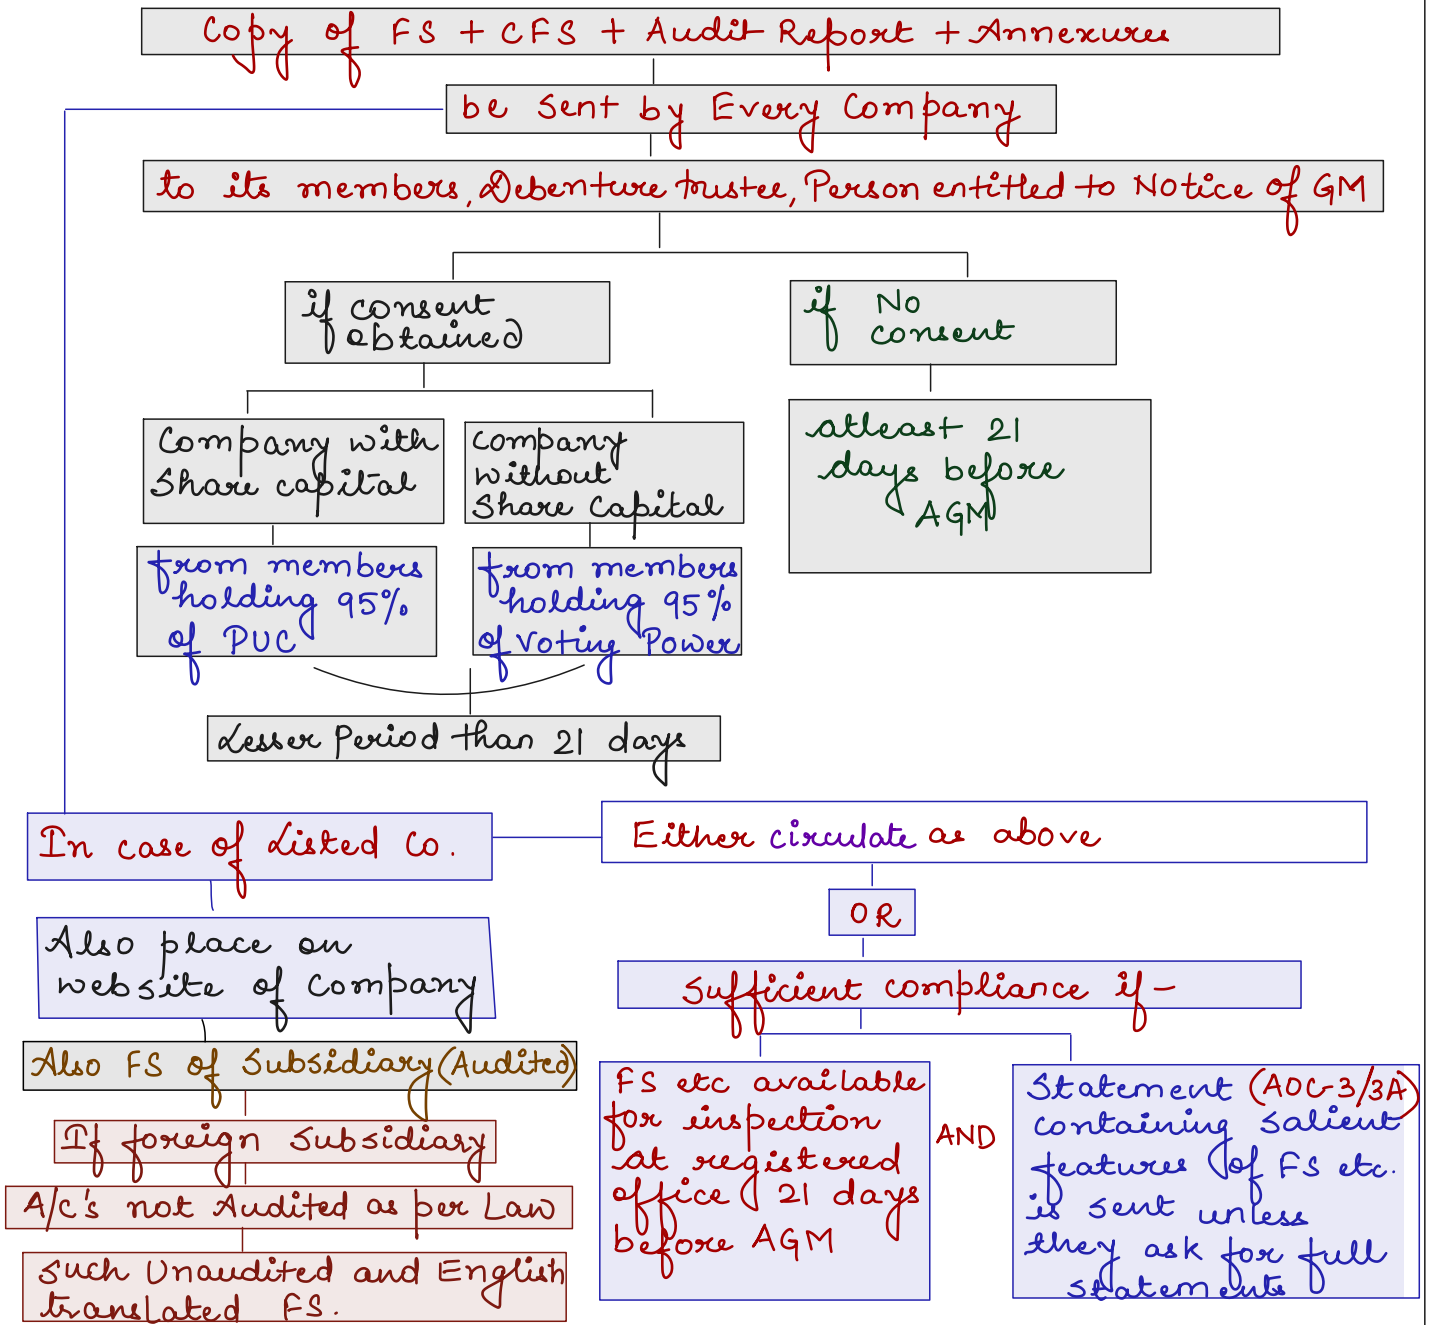 Copy of FS + CFS + Audit Report + Annexures
be sent by Every Company
to its members, Debenture trustee, Person entitled to Notice of GM
if consent
obtained
if No
consent
Company with
Share capital
Company
without
Share Capital
atleast 21
days before
AGM
from members
holding 95%
of PUC
from members
holding 95%
of Voting Power
Lesser Period than 21 days
In case of Listed Co.
Either circulate as above
OR
Also place on
website of Company
Sufficient compliance if -
Also FS of Subsidiary (Audited)
If foreign Subsidiary
A/c's not Audited as per Law
such Unaudited and English
translated FS.
FS etc available
for inspection
at registered
office 21 days
before AGM
AND
Statement (AOC-3/3A)
containing Salient
features of FS etc.
is sent unless
they ask for full
statements